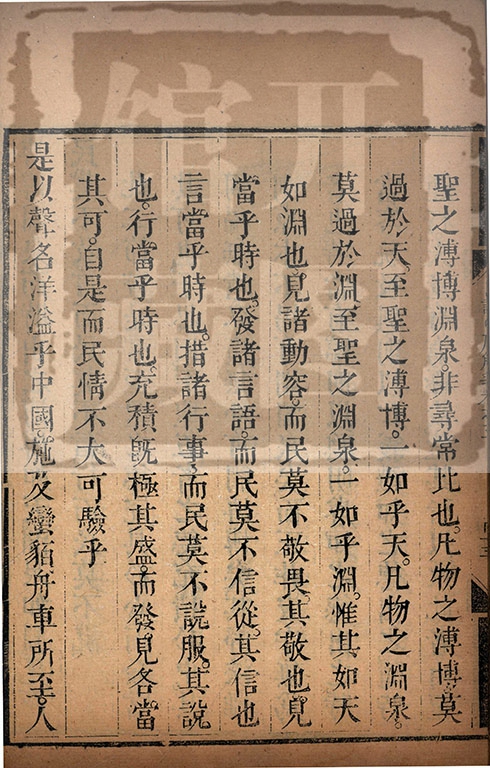 聖之溥博淵泉。非尋常比也。凡物之溥博。莫
過於天。至聖之溥博。一如乎天。凡物之淵泉。
莫過於淵。至聖之淵泉。一如乎淵。惟其如天
如淵也。見諸動容。而民莫不敬畏。其敬也。見
當乎時也。發諸言語。而民莫不信從。其信也
言當乎時也。措諸行事。而民莫不說服。其說
也。行當乎時也。充積旣極其盛。而發見各當
其可。自是而民情不大可驗乎
是以聲名洋溢乎中國。施及蠻貊舟車所至。人